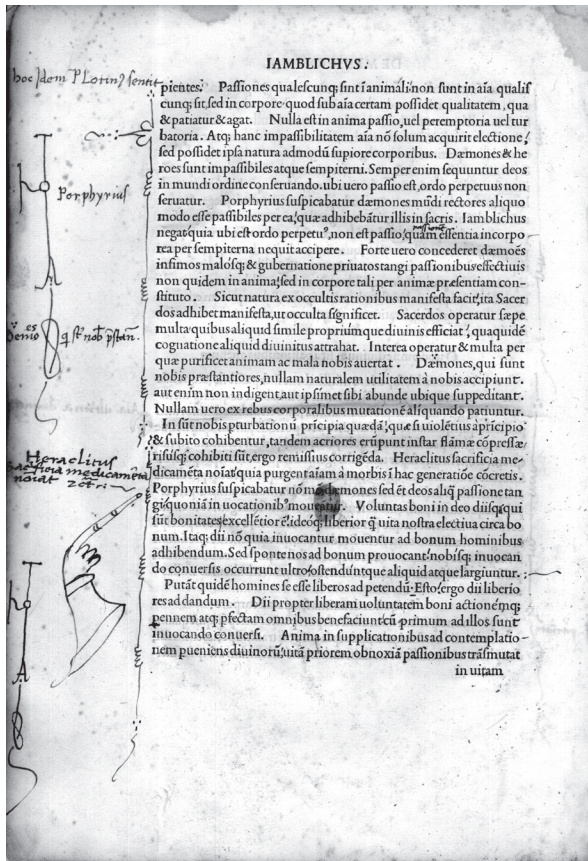 IAMBLICHVS:
hoc idem Plotinꝰ sentit
pientes. Passiones qualescunq; sint ī animāli: non sunt in aīa qualis
cunq; sit, sed in corpore quod sub aīa certam possidet qualitatem, qua
& patiatur & agat. Nulla est in anima passio, uel peremptoria uel tur
batoria. Atq; hanc impassibilitatem aīa nō solum acquirit electione,
sed possidet ipsa natura admodū supiore corporibus. Dæmones & he
roes sunt impassibiles atque sempiterni. Semper enim sequuntur deos
in mundi ordine conseruando. ubi uero passio est, ordo perpetuus non
seruatur. Porphyrius suspicabatur dæmones mūdi rectores aliquo
Porphyrius
modo esse passibiles per ea, quæ adhibebātur illis in sacris. Iamblichus
negat, quia ubi est ordo perpetuꝰ, non est passio, quam essentia incorpo
passionē
rea per sempiterna nequit accipere. Forte uero concederet dæmōes
infimos malosq; & gubernatione priuatos tangi passionibus effectiuis
non quidem in anima, sed in corpore tali per animæ præsentiam con-
stituto. Sicut natura ex occultis rationibus manifesta facit, ita Sacer
dos adhibet manifesta, ut occulta significet. Sacerdos operatur sæpe
multa quibus aliquid simile propriumque diuinis efficiat, quaquidē
cognatione aliquid diuinitus attrahat. Interea operatur & multa per
quæ purificet animam ac mala nobis auertat. Dæmones, qui sunt
nobis præstantiores, nullam naturalem utilitatem à nobis accipiunt.
aut enim non indigent, aut ipsimet sibi abunde ubique suppeditant.
Nullam uero ex rebus corporalibus mutationē aliquando patiuntur.
In sūt nobis pturbationū pricipia quædā, quæ si uiolētius a pricipio
& subito cohibentur, tandem acriores erūpunt instar flāmæ cōpressæ
Heraclitus
sacrificia medicamēta
noīat
risusq; cohibiti sūt, ergo remissius corrigēda. Heraclitus sacrificia me
dicamēta noīat, quia purgent aīam à morbis ī hac generatiōe cōcretis.
Porphyrius suspicabatur nō mō dæmones sed ēt deos aliq̄ passione tan
gi, quoniā in uocationibꝰ mouentur. Voluntas boni in deo diisq; qui
sūt bonitates excellētior ē, ideoq; liberior q̄ uita nostra electiua circa bo
num. Itaq; dii nō quia inuocantur mouentur ad bonum hominibus
adhibendum. Sed sponte nos ad bonum prouocant, nobisq; inuocan
do conuersis occurrunt ultro, ostenduntque aliquid atque largiuntur.
Putāt quidē homines se esse liberos ad petendū. Esto, ergo dii liberio
res ad dandum. Dii propter liberam uoluntatem boni actionēmq;
pennem atq; pfectam omnibus benefaciunt, cū primum ad illos sunt
inuocando conuersi. Anima in supplicationibus ad contemplatio-
nem pueniens diuinorū, uitā priorem obnoxiā passionibus trāsmutat
in uitam